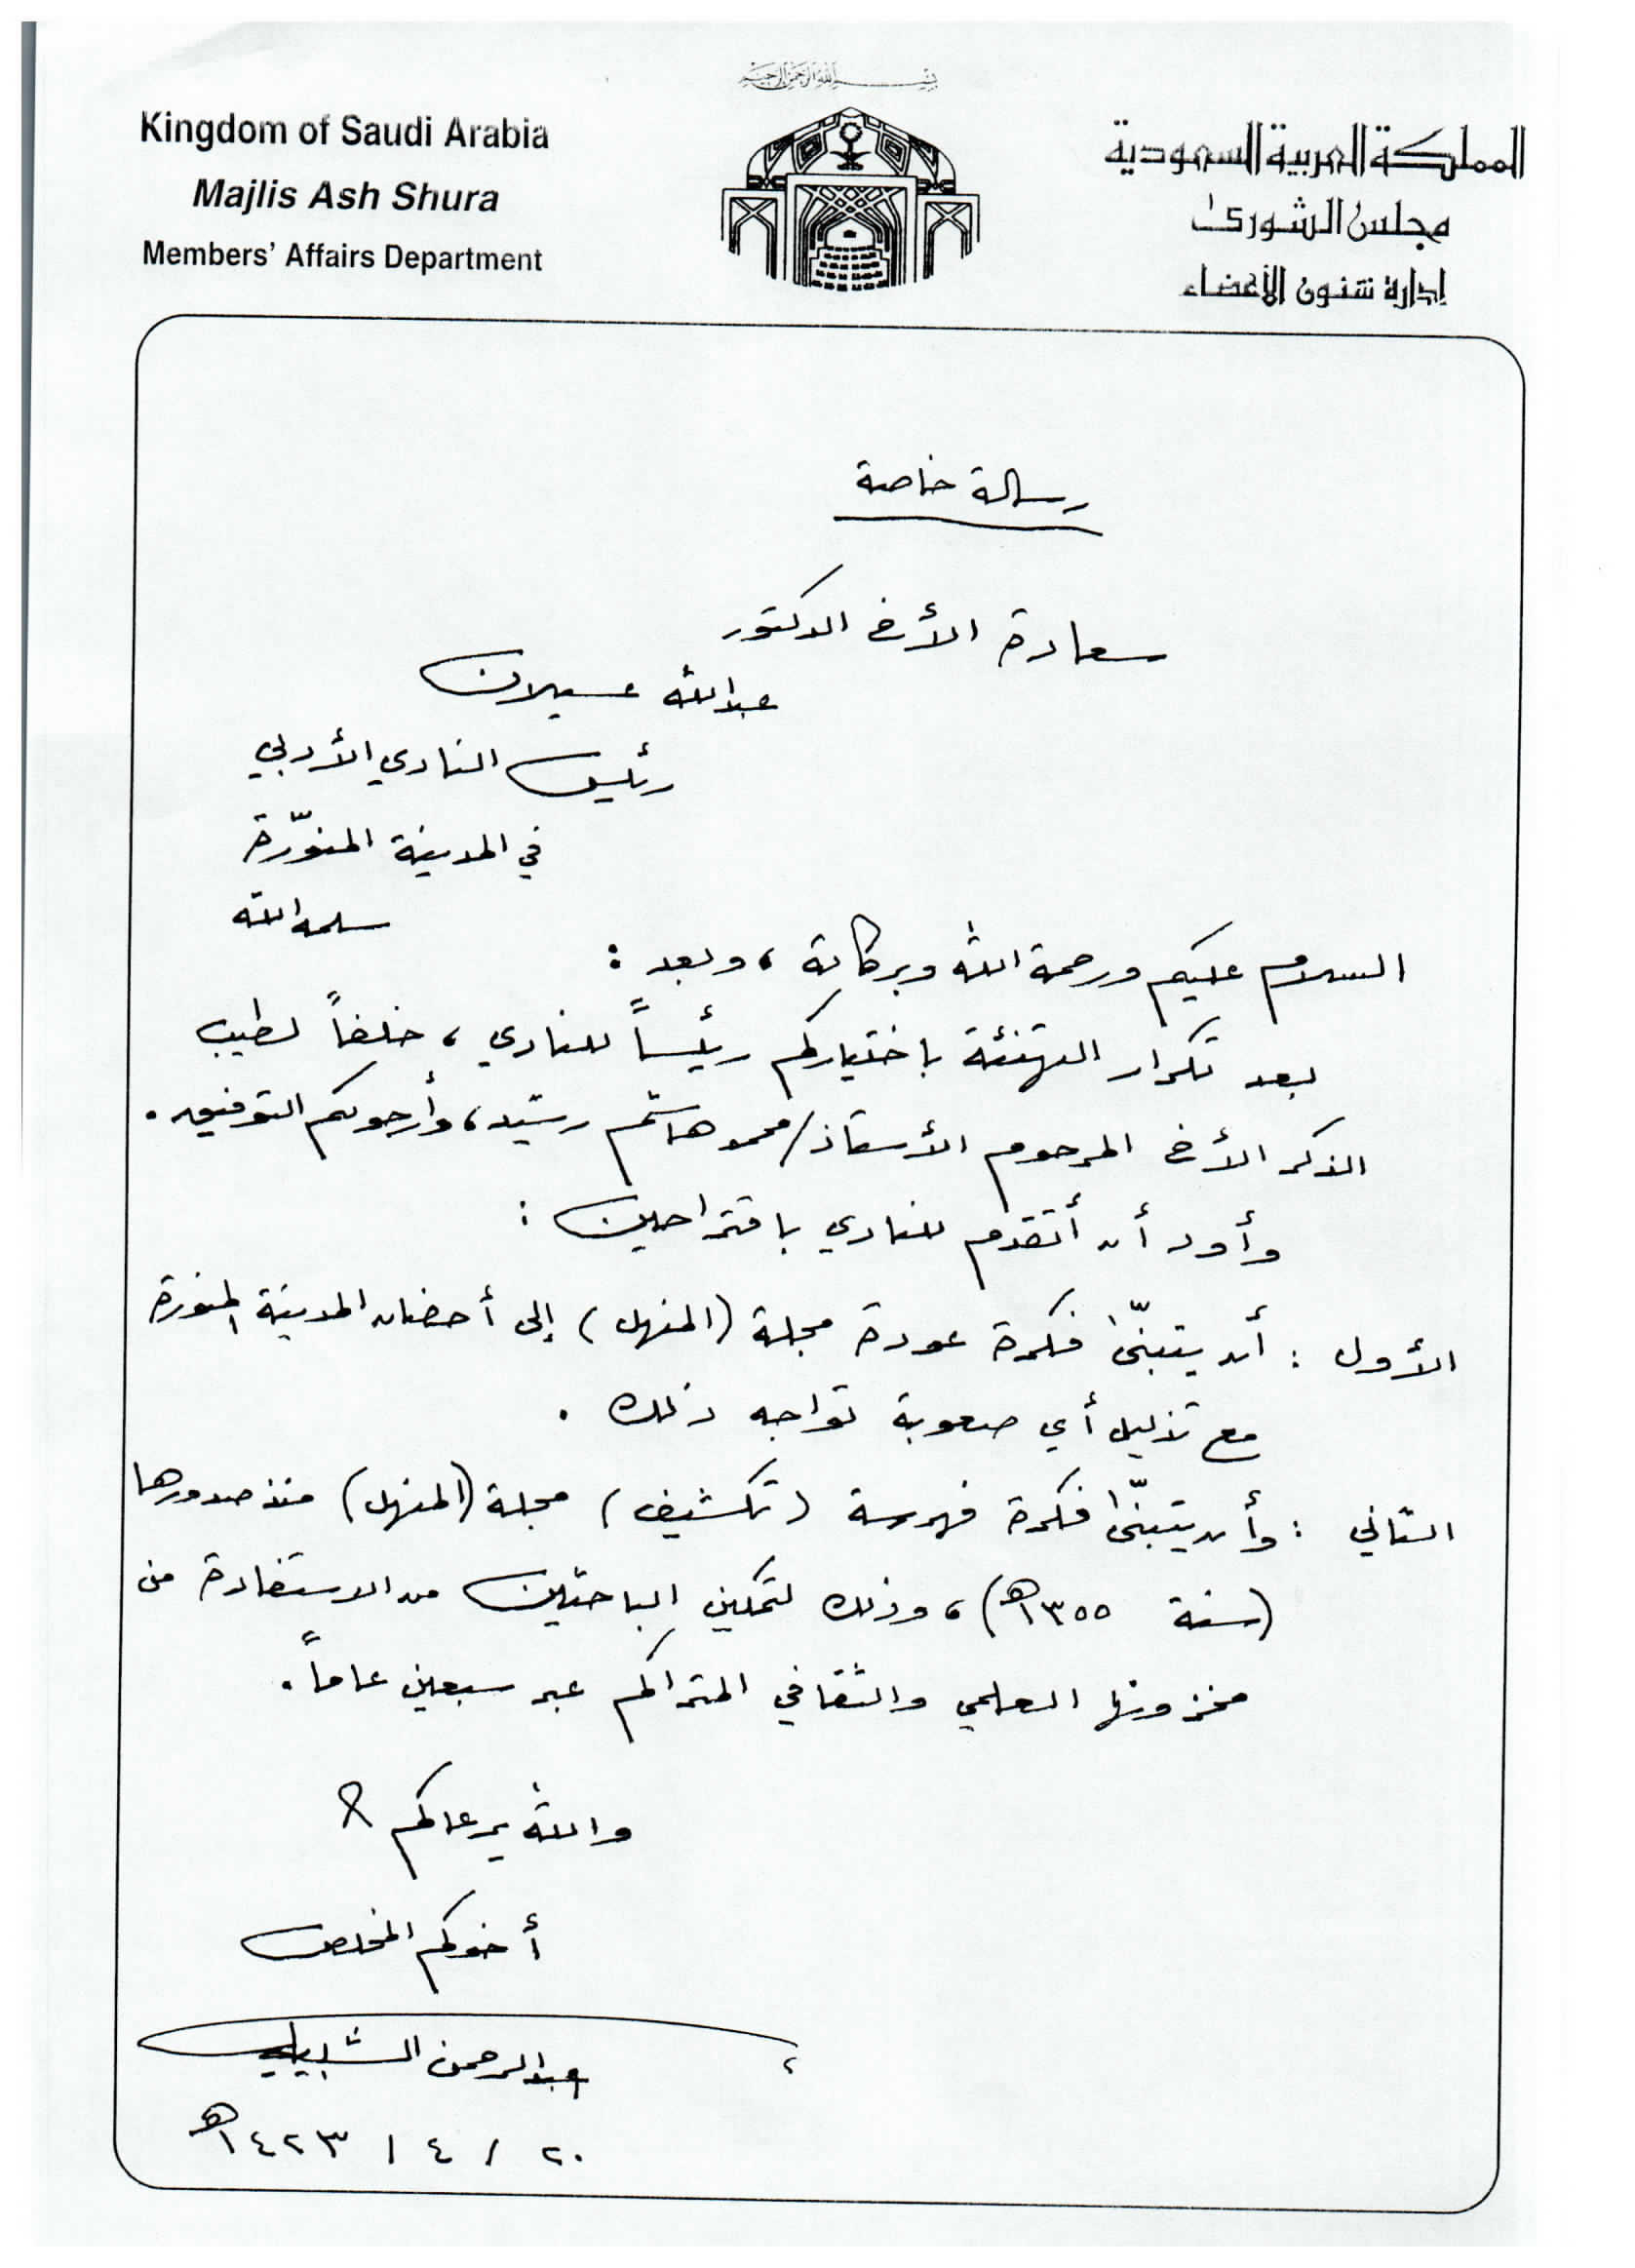 بسم الله الرحمن الرحيم
Kingdom of Saudi Arabia
Majlis Ash Shura
Members' Affairs Department
المملكة العربية السعودية
مجلس الشورى
إدارة شئون الأعضاء
رسالة خاصة
سعادة الأخ الدكتور
عبدالله عسيلان
رئيس النادي الأدبي
في المدينة المنوّرة
سلمه الله
السلام عليكم ورحمة الله وبركاته ، وبعد :
بعد تكرار التهنئة باختياركم رئيساً للنادي ، خلفاً لطيب
الذكر الأخ المرحوم الأستاذ/محمد هاشم رشيد ، وأرجو لكم التوفيق .
وأود أن أتقدم للنادي باقتراحين :
الأول : أن يتبنّى فكرة عودة مجلة (المنهل) إلى أحضان المدينة المنورة
مع تذليل أي صعوبة تواجه ذلك .
الثاني : وأن يتبنّى فكرة فهرسة (تكشيف) مجلة (المنهل) منذ صدورها
(سنة ١٣٥٥هـ) ، وذلك لتمكين الباحثين من الاستفادة من
مخزونها العلمي والثقافي المتراكم عبر سبعين عاماً .
والله يرعاكم
أخوكم المخلص
عبدالرحمن الشبيلي
٢٠ / ٤ / ١٤٢٣هـ